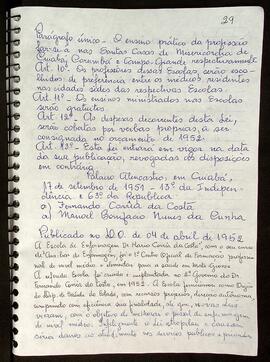 29
Parágrafo único - O ensino prático da profissão
far-se-á nas Santas Casas de Misericórdia de
Cuiabá, Corumbá e Campo Grande respectivamente
Art. 10º - Os professores dessas Escolas, serão esco-
lhidos de preferência entre os médicos residentes
nas cidades sédes das respectivas Escolas.
Art. 11º - Os ensinos ministrados nas Escolas
serão gratuitos.
Art. 12º - As despesas decorrentes desta Lei,
serão cobertas por verbas próprias, a ser
consignada no orcamento de 1952.
Art. 13º - Esta Lei entrará em vigor na data
da sua publicação, revogadas as disposições
em contrário.
Palacio Alencastro, em Cuiabá,
17 de setembro de 1951 - 130 da Indepen-
dência e 63º da República
a) Fernando Corrêa da Costa
a) Manoel Bonifacio Nunes da Cunha
Publicado no D.O. de 04 de abril de 1952
A Escola de Enfermagem "Dr Mario Corrêa da Costa", com o seu curso
de "Auxiliar de Enfermagem", foi o 1º Centro Oficial de Formação profissional
em nível médio e elementar para a saúde em Mato Grosso
A referida Escola foi criada e implantada no 1º Governo do Dr.
Fernando Corrêa da Costa, em 1952. A Escola funcionava como Órgão
do Dep. de Saúde do Estado, com recursos próprios,
de nível médio. Infelizmente